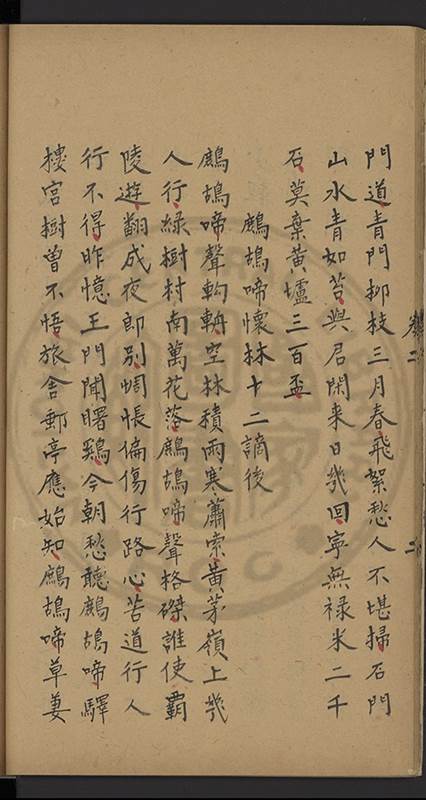 門道青門柳枝三月春飛絮愁人不堪掃石門
山水青如苔與君閑来日幾回寧無祿米二千
石莫棄黃壚三百盃
鷓鴣啼懷林十二謫後
鷓鴣啼聲軥輈空林積雨寒蕭索黃茅嶺上幾
人行綠樹村南萬花落鷓鴣啼聲格磔誰使霸
陵遊翻成夜郎別惆悵偏傷行路心苦道行人
行不得昨憶王門聞曙鷄今朝愁聽鷓鴣啼驛
摟宮樹曽不悟旅舎郵亭應始知鷓鴣啼草萋
卷二
二